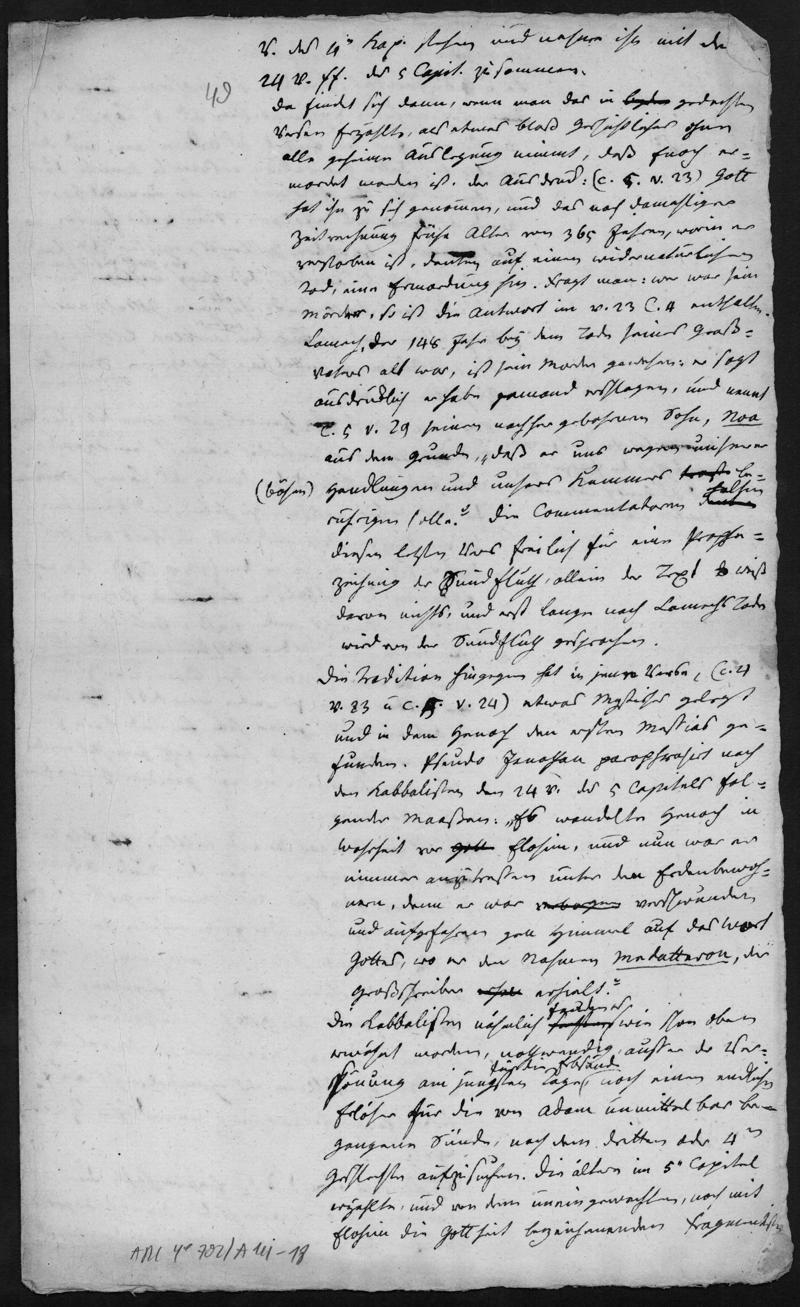 49
V. des 4n Kap. stehen und nehme ihn mit den
24 V. ff. des 5 Capit. zusammen.
Da findet sich denn, wenn man das in beyden gedachten
Versen Erzählte, als etwas bloß Geschichtliches ohne
alle geheime Auslegung nimmt, daß Enoch er-
mordet worden ist. der Ausdruck: (C. 5. v. 23) Gott
hat ihn zu sich genommen, und das nach damahliger
Zeitrechnung frühe Alter von 365 Jahren, worin er
verstorben ist, deuten auf einen widernatürlichen
Tod, eine Ermordung hin. Fragt man: wer war sein
Mörder, so ist die Antwort im v. 23 C. 4 enthalten.
Lamech, der 148 Jahr bey dem Tode seines Groß-
vaters alt war, ist sein Mörder gewesen: er sagt
ausdrücklich er habe jemand erschlagen, und nennt
C. 5 v. 29 seinen nachher gebohrnen Sohn, Noa
aus dem Grunde, „daß er uns wegen unserer
(bösen) Handlungen und unsers Kummers be-
ruhigen solle.“ Die Commentatoren halten
diesen letzten Vers freilich für eine Prophe-
zeihung der Sündfluth, allein der Text weiß
davon nichts, und erst lange nach Lamechs Tode
wird von der Sündfluth gesprochen.
Die Tradition hingegen hat in jene Verse, (C. 4
v. 23 u C. 5. v. 24) etwas Mystisches gelegt
und in dem Henoch den ersten Messias ge-
funden. Pseudo Jonathan paraphrasirt nach
den Kabbalisten den 24 V. des 5 Capitels fol-
gender Maaßen: „Es wandelte Henoch in
Wahrheit vor Gott Elohim, und nun war er
nimmer anzutreffen unter den Erdenbewoh-
nern, denn er war verborgen verschwunden
und aufgefahren gen Himmel auf das Wort
Gottes, wo er den Nahmen Medatteron, der
Großschreiber erhielt.“
Die Kabbalisten nähmlich fanden es wie schon oben
erwähnt worden, nothwendig, außer der Ver-
söhnung am jüngsten Tage, für die Erbsünde noch einen endlichen
Erlöser für die von Adam unmittelbar be-
gangene Sünde, nach dem dritten oder 4n
Geschlechte aufzusuchen. Die ältere im 5n Capitel
erzählte, und von dem uneingeweihten, noch mit
Elohim die Gottheit bezeichnenden Fragmentisten
ABI 4o 702/A III-18